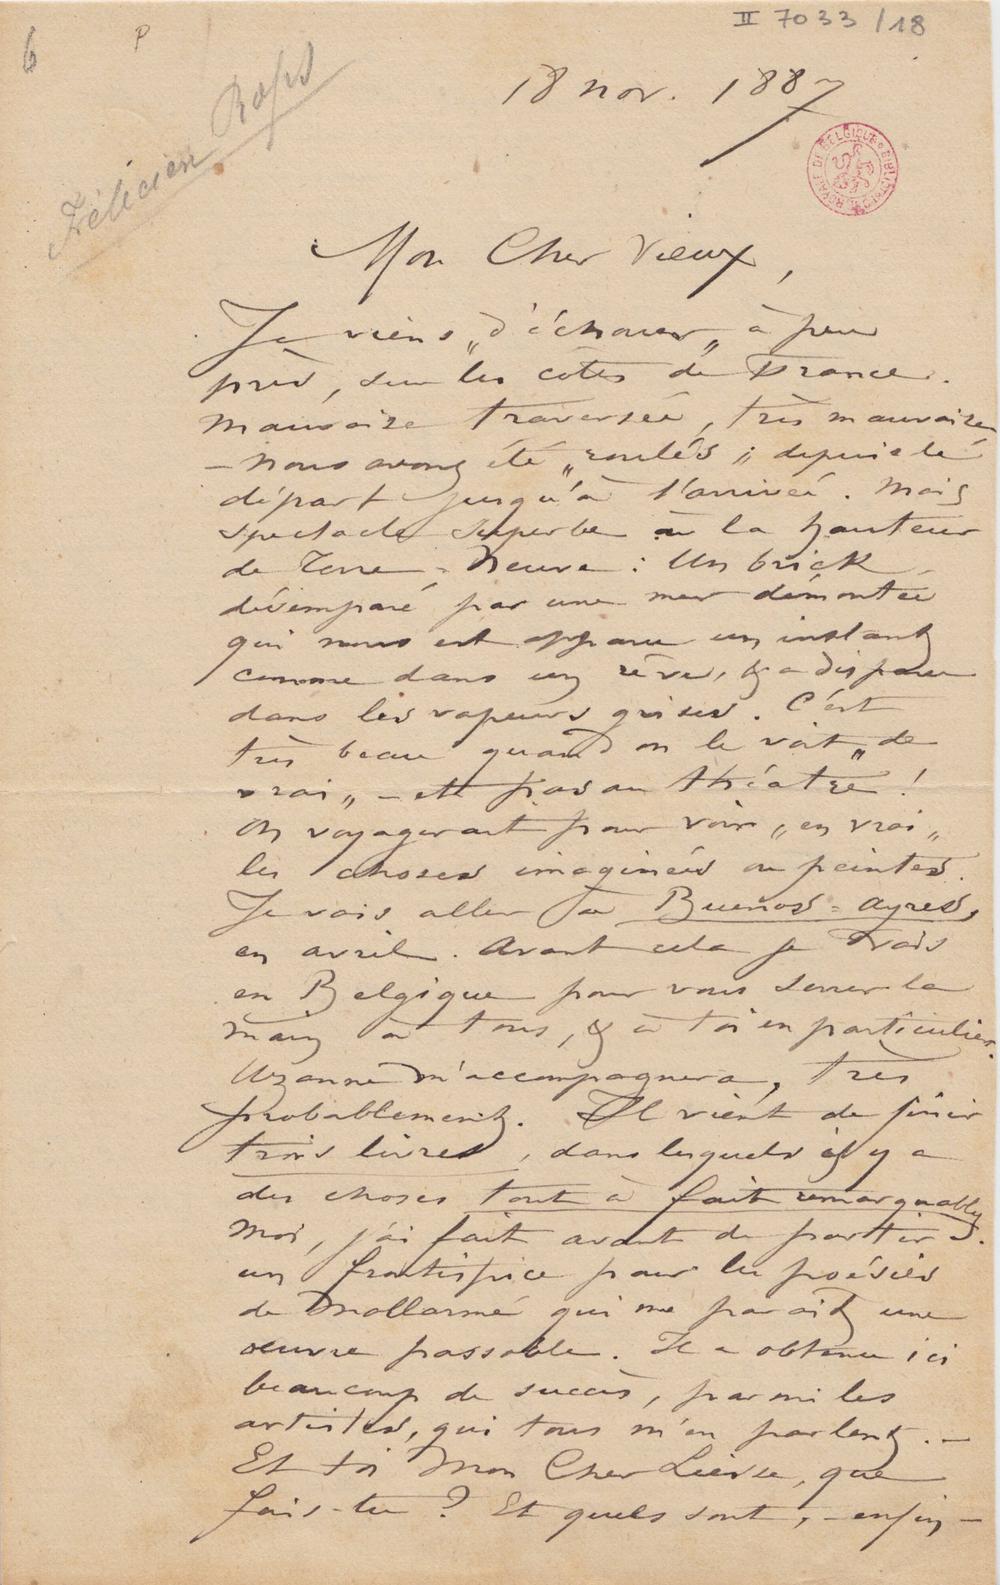 II 7033/18
6
P
Félicien Rops
18 nov. 1887
BIBLIOTHEQUE ROYALE DE BELGIQUE
Mon Cher Vieux,
Je viens „d'échouer„ à peu
près, sur les côtes de France.
Mauvaise traversée, très mauvaise
– Nous avons été „roulés„ depuis le
départ jusqu'à l'arrivée. Mais
spectacle superbe à la hauteur
de Terre-Neuve : Un brick
désemparé par une mer démontée
qui nous est apparu un instant
comme dans un rêve, & a disparu
dans les vapeurs grises. C'est
très beau quand on le voit „de
vrai„ – et pas au théâtre !
On voyagerait pour voir „en vrai„
les choses imaginées ou peintes.
Je vais aller à Buenos-Ayres,
en avril. Avant cela je vais
en Belgique pour vous serrer la
main à tous, & à toi en particulier.
Uzanne m'accompagnera, très
probablement. Il vient de finir
trois livres, dans lesquels il y a
des choses tout à fait remarquables
Moi, j'ai fait avant de partir
un frontispice pour les poésies
de Mallarmé qui me parait une
œuvre passable. Il a obtenu ici
beaucoup de succès, parmi les
artistes, qui tous m'en parlent. –
Et toi Mon Cher Liesse, que
fais-tu ? Et quels sont, – enfin –